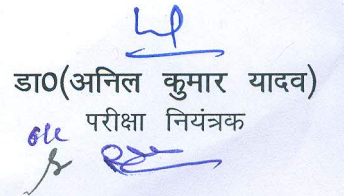 डा0(अनिल कुमार यादव)
परीक्षा नियंत्रक